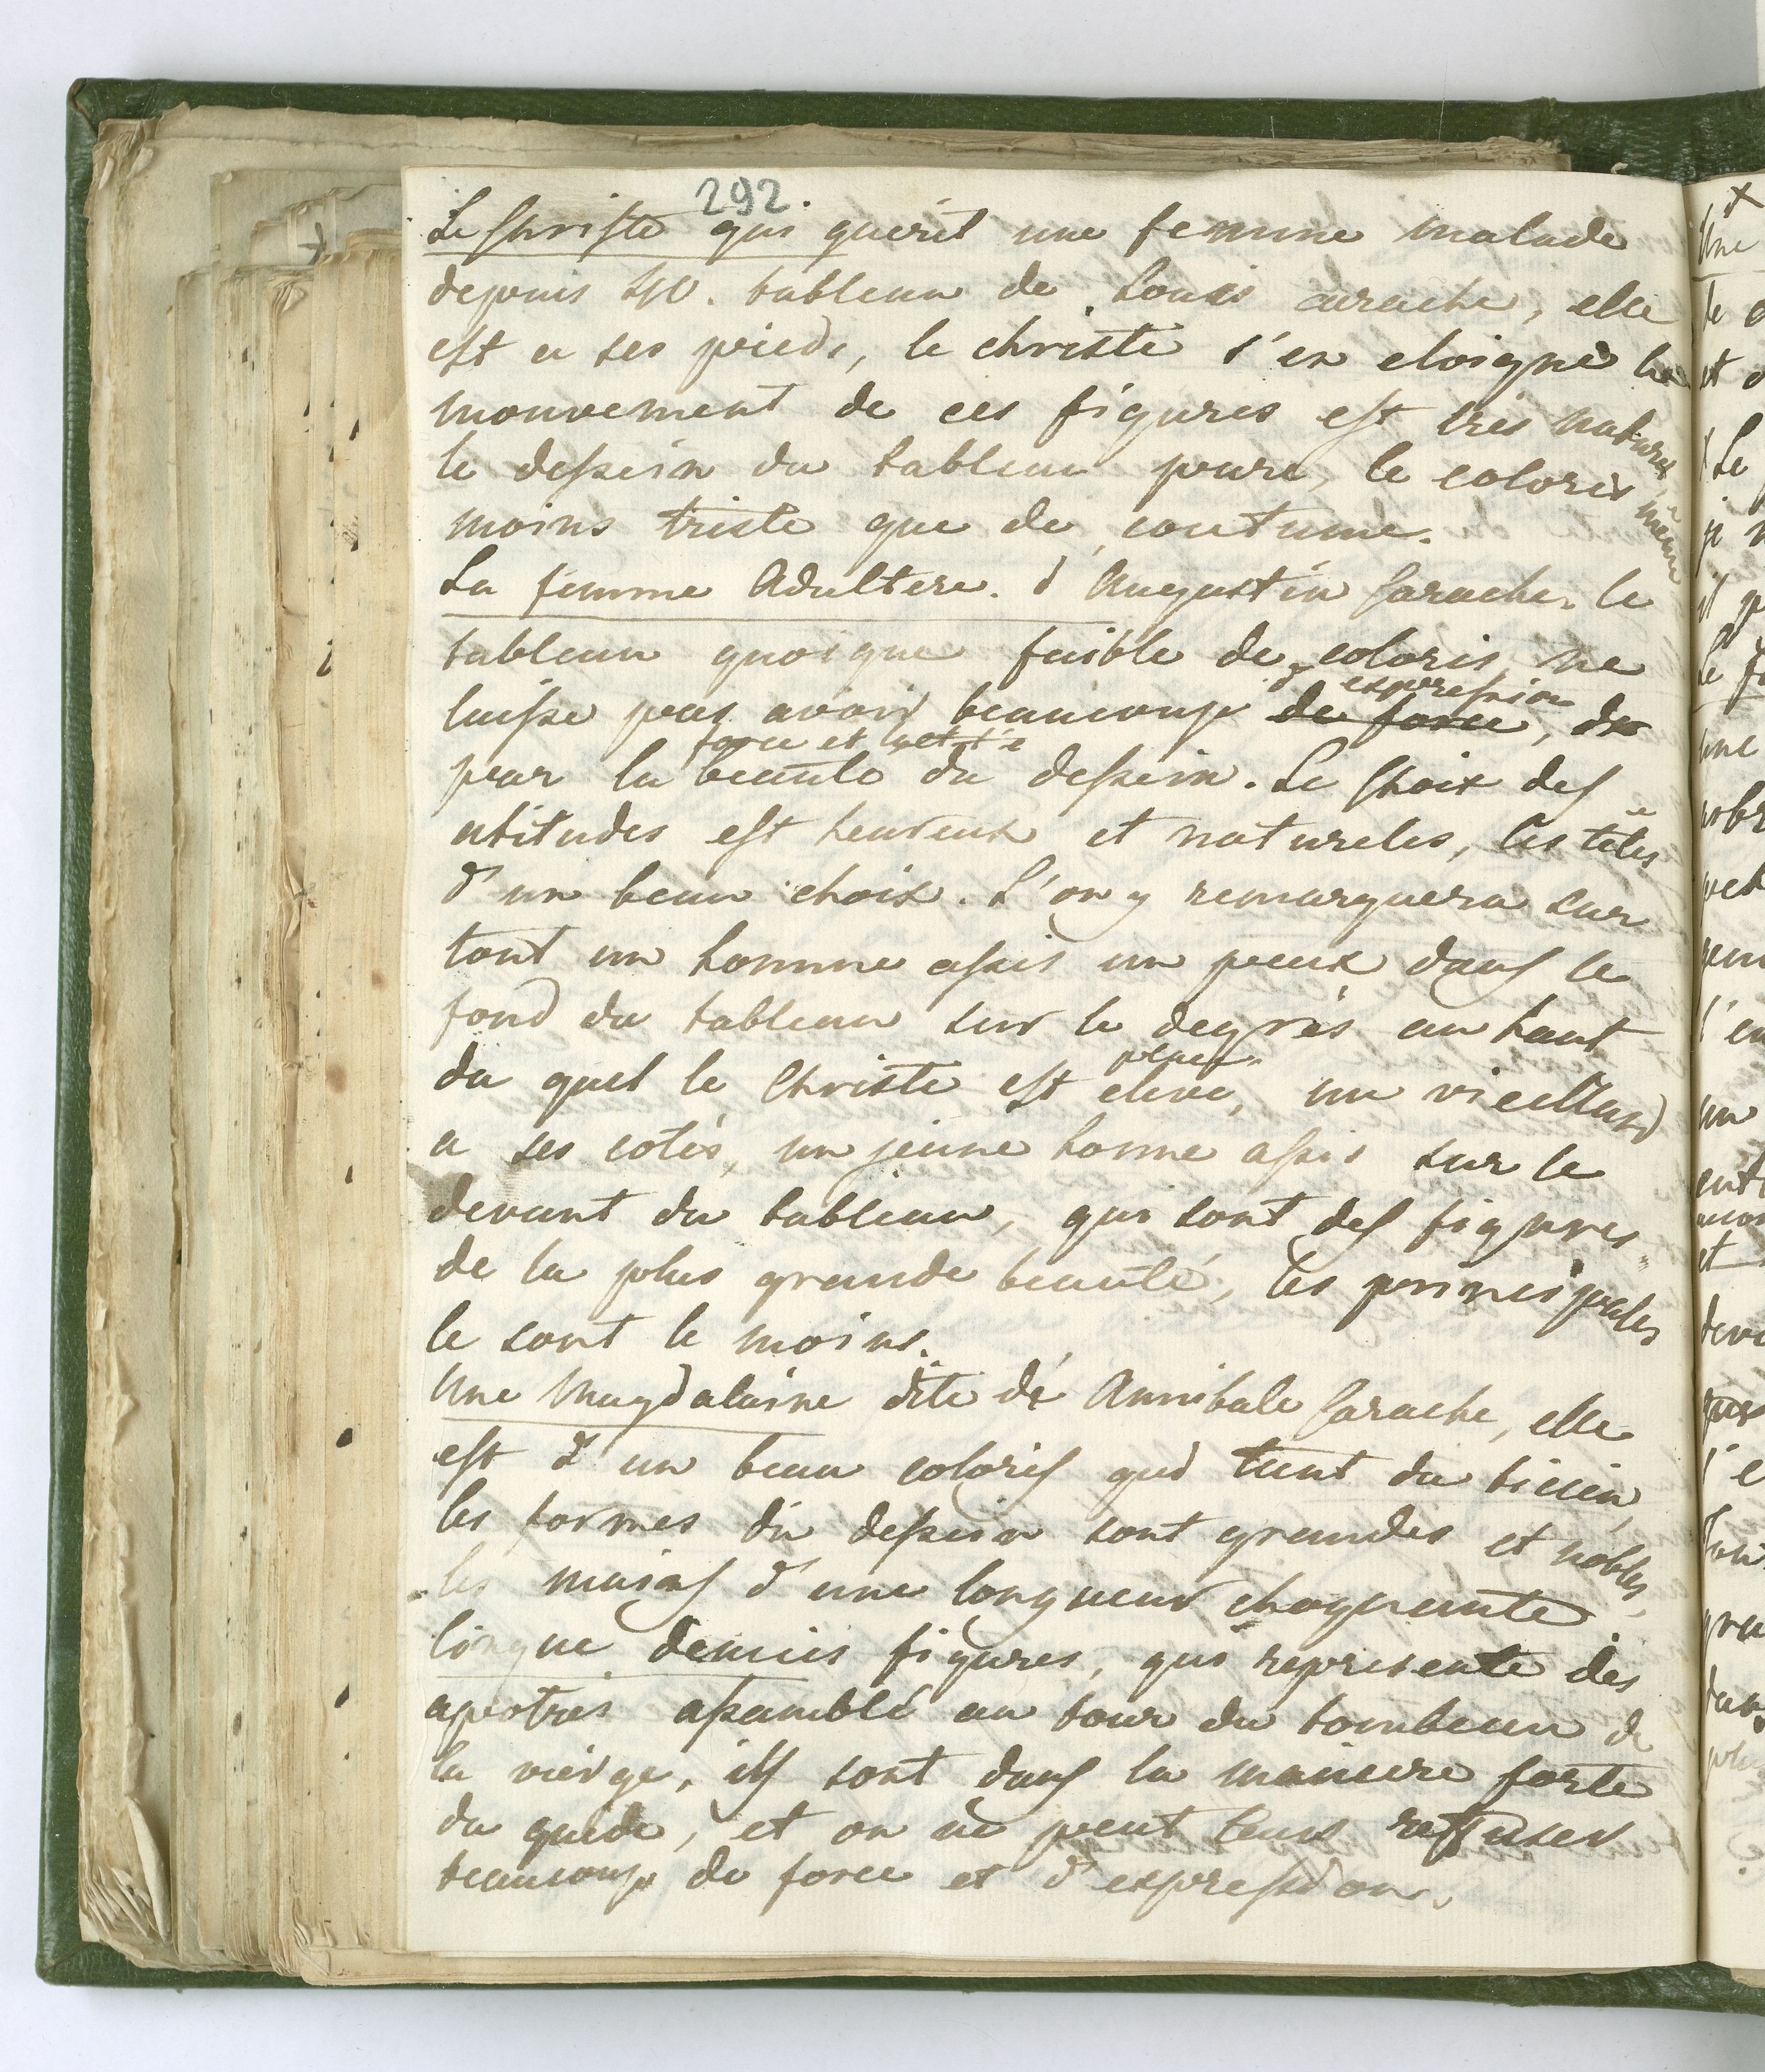 292.
Le Christe qui guerit une femme malade
depuis tableau de Louis carache, elle
est a ses pieds, le christe s'en eloigne le
mouvement de ces figures est tres naturel
le dessein du tableau pure, le coloris même
moins triste que de coutume.
La femme Adultere. d'Augustin Carache. le
tableau quoique faible de coloris, ne
expression
laisse pas avoir beaucoup de force, de
force et
par la beaute du dessein. Le Choix des
atitudes est heureux et natureles, les têtes
d'un beau choix. L'on y remarquera sur
tout un homme assis un peux dans le
fond du tableau sur le degrés au haut
placer
du quel le Christe est eleve, un vieillard
a ses cotés, un jeune home assis sur le
devant du tableau, qui sont des figures
de la plus grande beauté, les principales
le sont le moins.
Une Magdalaine dite de Annibale Carache, elle
est d'un beau coloris qui tient du ticien,
les formes du dessein sont grandes et nobles,
les mains d'une longueur choquante
longue demies figures, qui represente des
apotres assamblé au tour du tombeau de
la vierge, ils sont dans la maniere forte
du guide, et on ne peut leurs reffuser
beaucoup de force et d'expression.